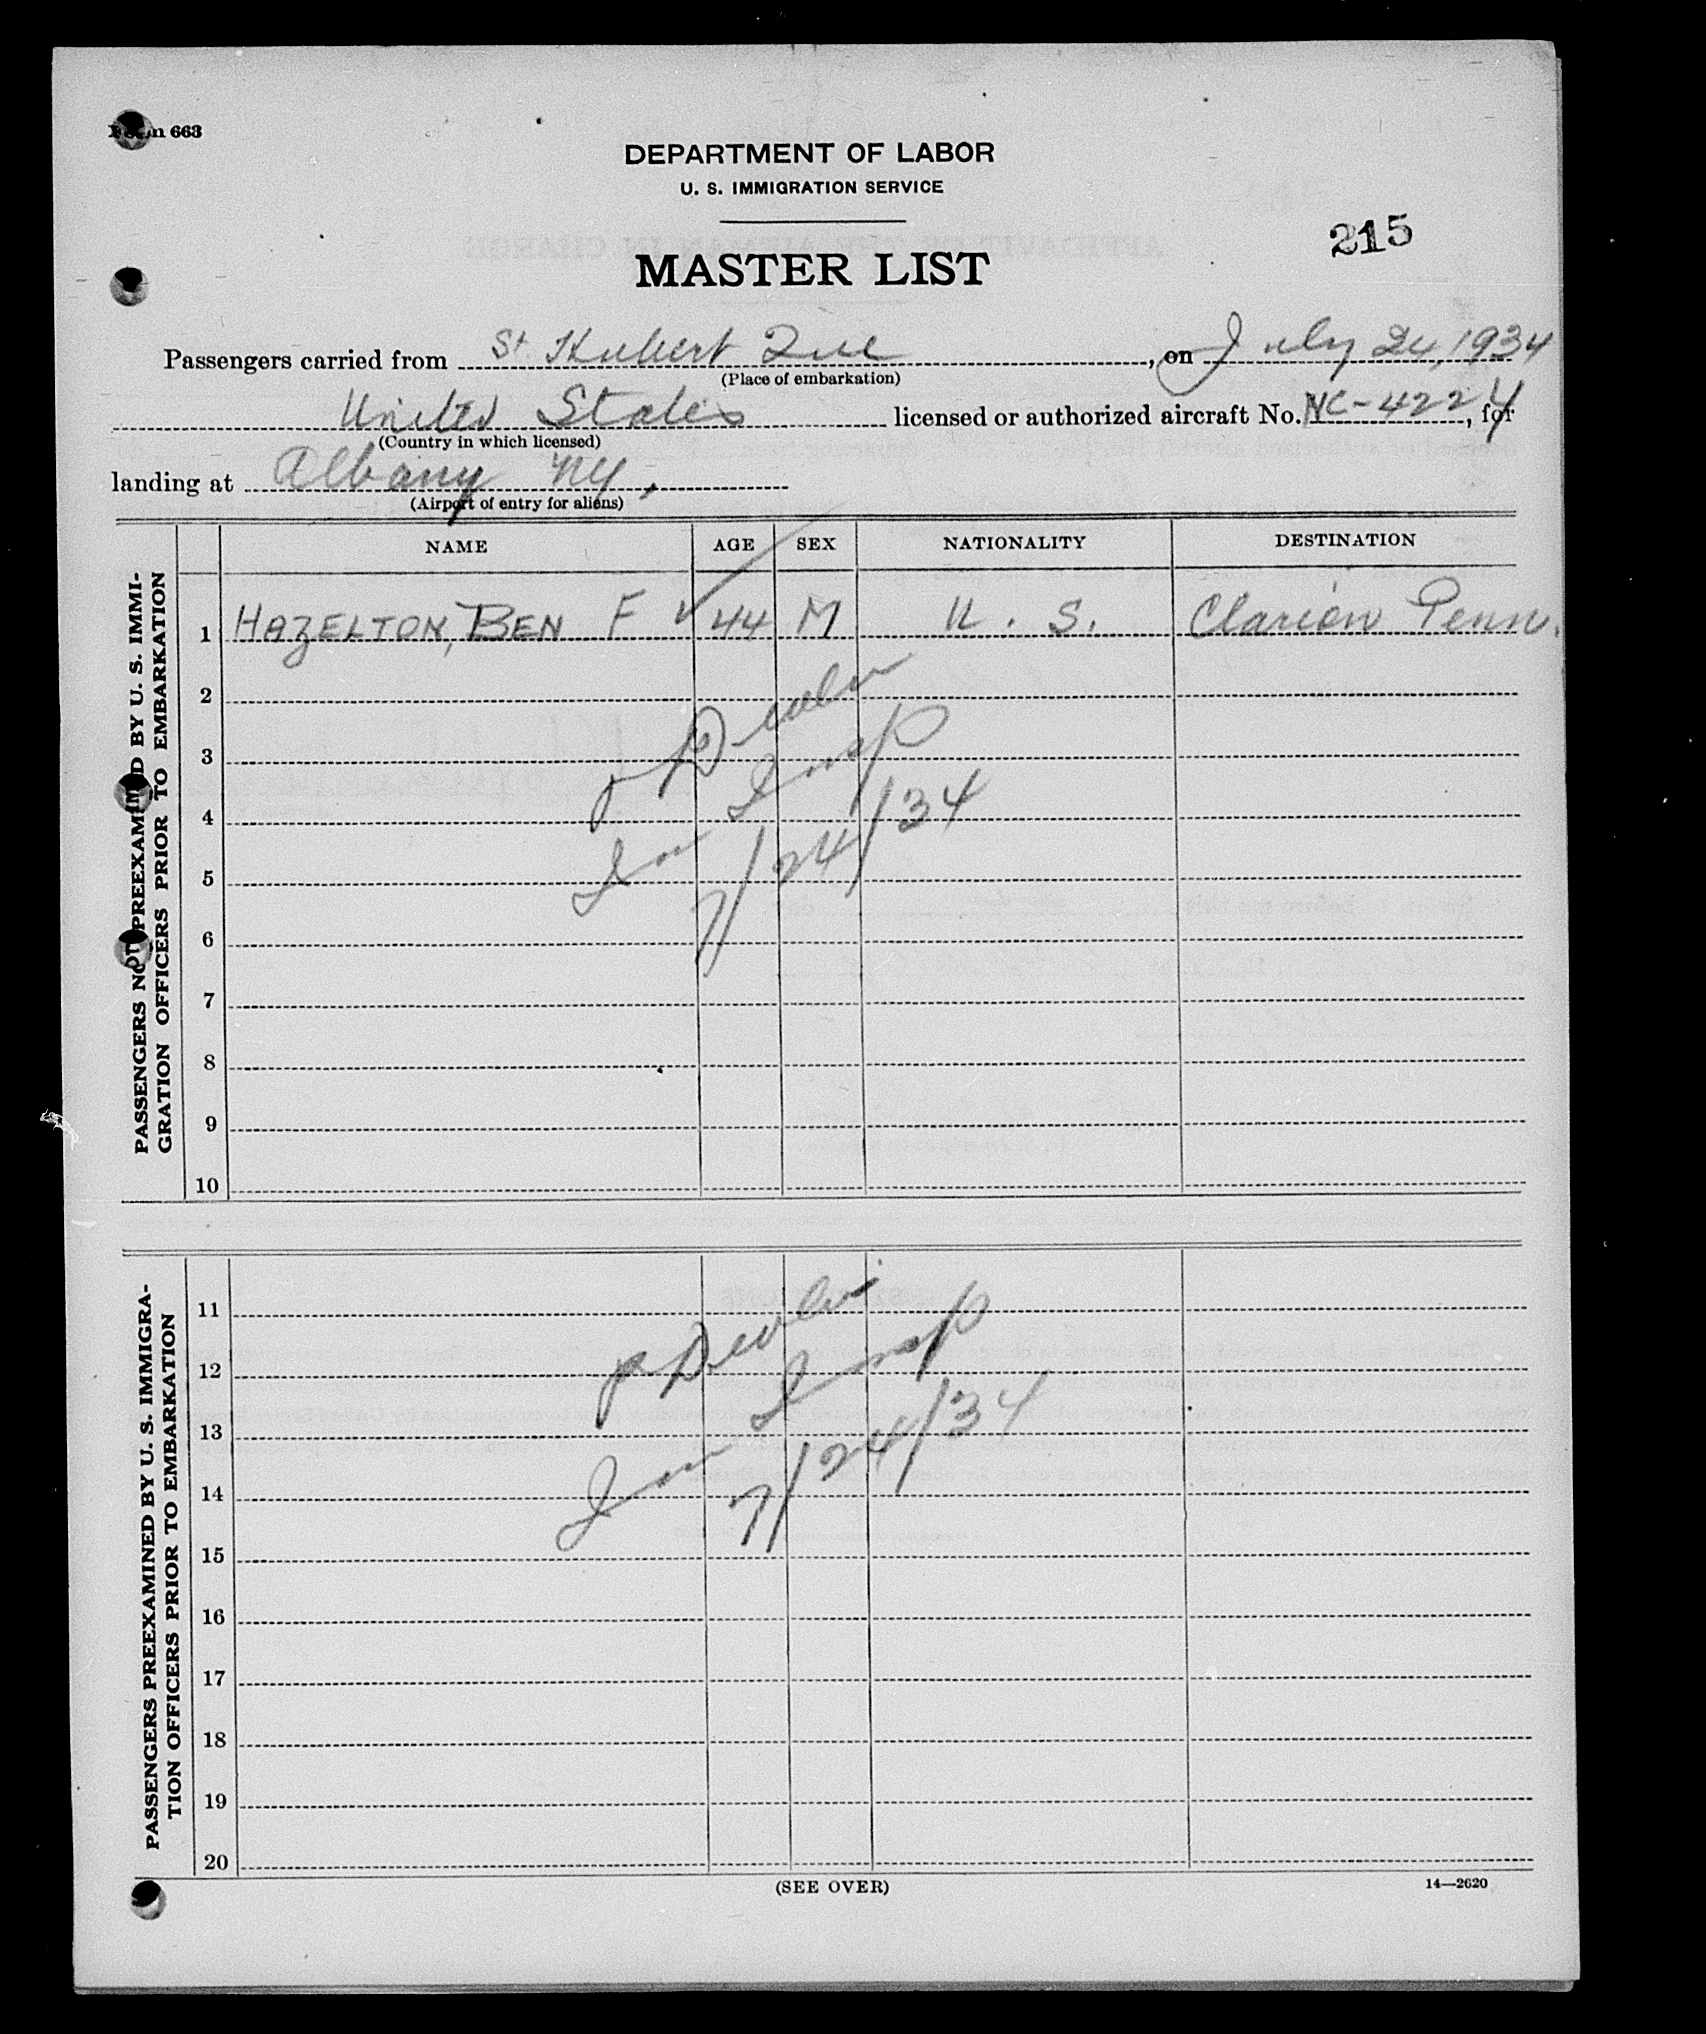 Form 663
DEPARTMENT OF LABOR
U. S. IMMIGRATION SERVICE
215
MASTER LIST
Passengers carried from St Hubert Que, on July 24, 1934
(Place of embarkation)
United States licensed or authorized aircraft No. NC-4224, for
(Country in which licensed)
landing at Albany NY,
(Airport of entry for aliens)
NAME AGE SEX NATIONALITY DESTINATION
PASSENGERS NOT PREEXAMINED BY U. S. IMMI-
GRATION OFFICERS PRIOR TO EMBARKATION
1 HAZELTON, BEN F 44 M U. S. Clarion Penn.
2
3
4
5
6
7
8
9
10
Devlin
Imm Insp
7/24/34
PASSENGERS PREEXAMINED BY U. S. IMMIGRA-
TION OFFICERS PRIOR TO EMBARKATION
11
12
13
14
15
16
17
18
19
20
Devlin
Imm Insp
7/24/34
(SEE OVER)
14—2620